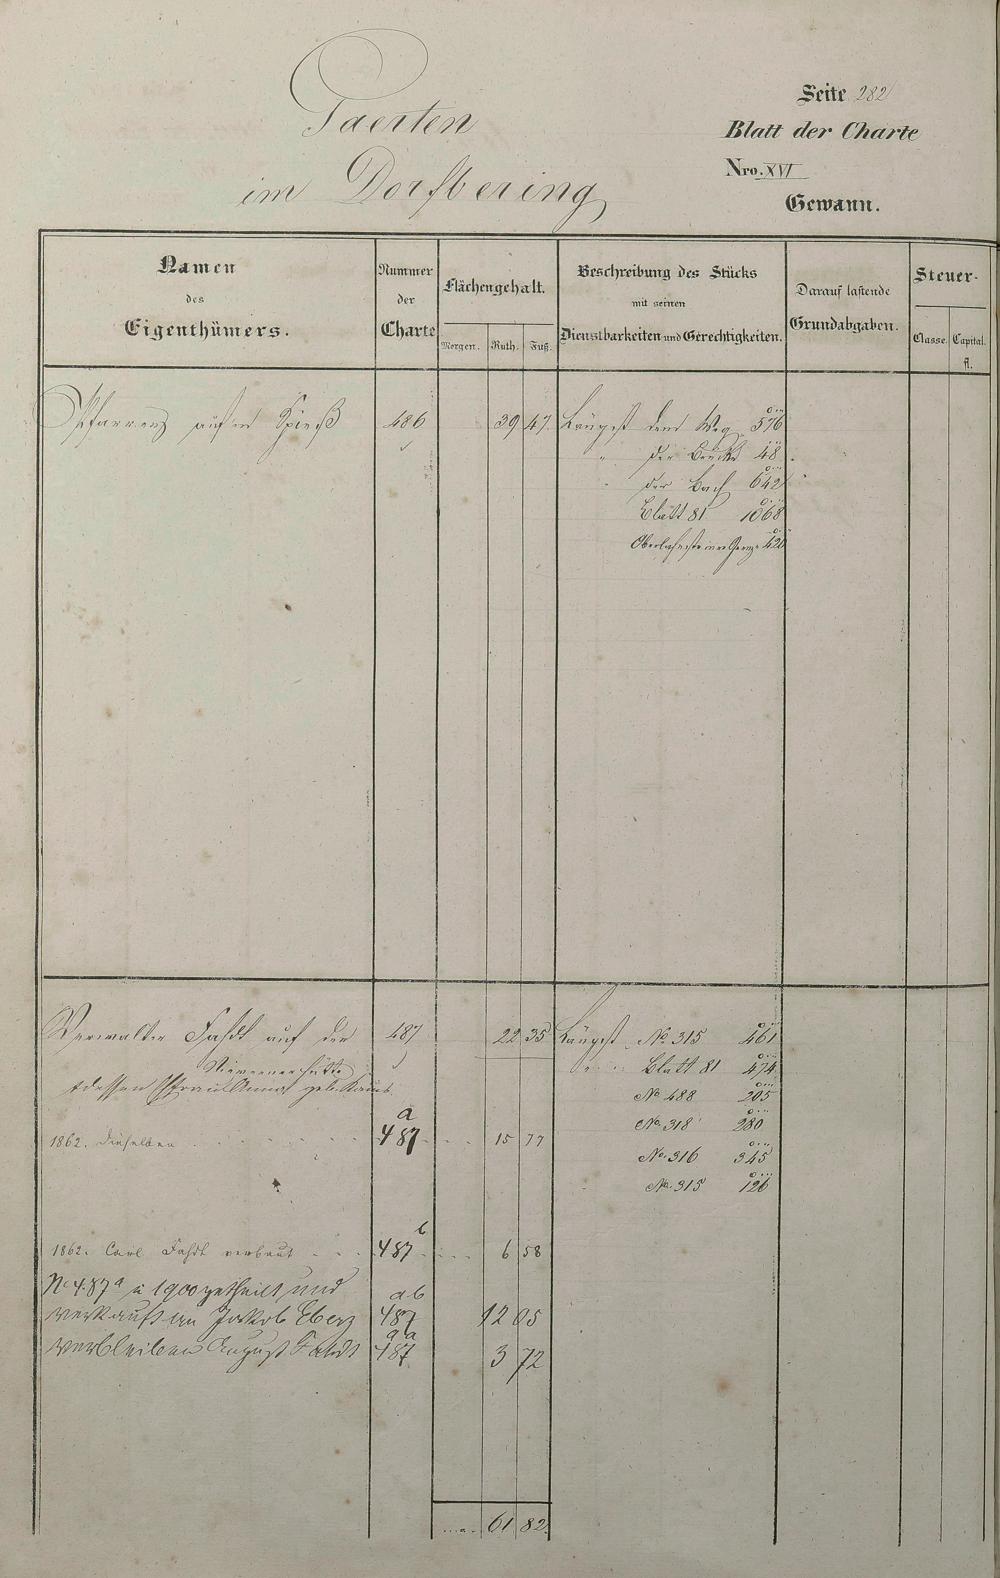 Gaerten
im Dorfbering
Seite 282
Blatt der Charte
Nro. XVI
Gewann.
Namen
des
Eigenthümers.
Nummer
der
Charte
Flächengehalt.
Morgen. Ruth. Fuß.
Beschreibung des Stücks
mit seinen
Dienstbarkeiten und Gerechtigkeiten.
Darauf lastende
Grundabgaben.
Steuer-
Classe. Capital.
fl.
auf'm Spieß 486 39 47. Längst dem Weg 576
" der Brücke 48
" der Bach 642
Blatt 81 1068
420
Verwalter Fahdt auf der 487 22 35 Längst No. 315 461
Nieverner hütte
" Blatt 81 474
dessen Frau Anna geb.
No. 488 205
No. 318 280
1862. dieselben 487 a 15 77
No. 316 345
No. 315 126
1862. Carl Fahdt verbaut 487 b 6 58
No 487 a in 1900 getheilt und
verkauft an Jakob Eberz 487 ab 12 05
verbleiben August Fahdt 487 aa 3 72
61 82.